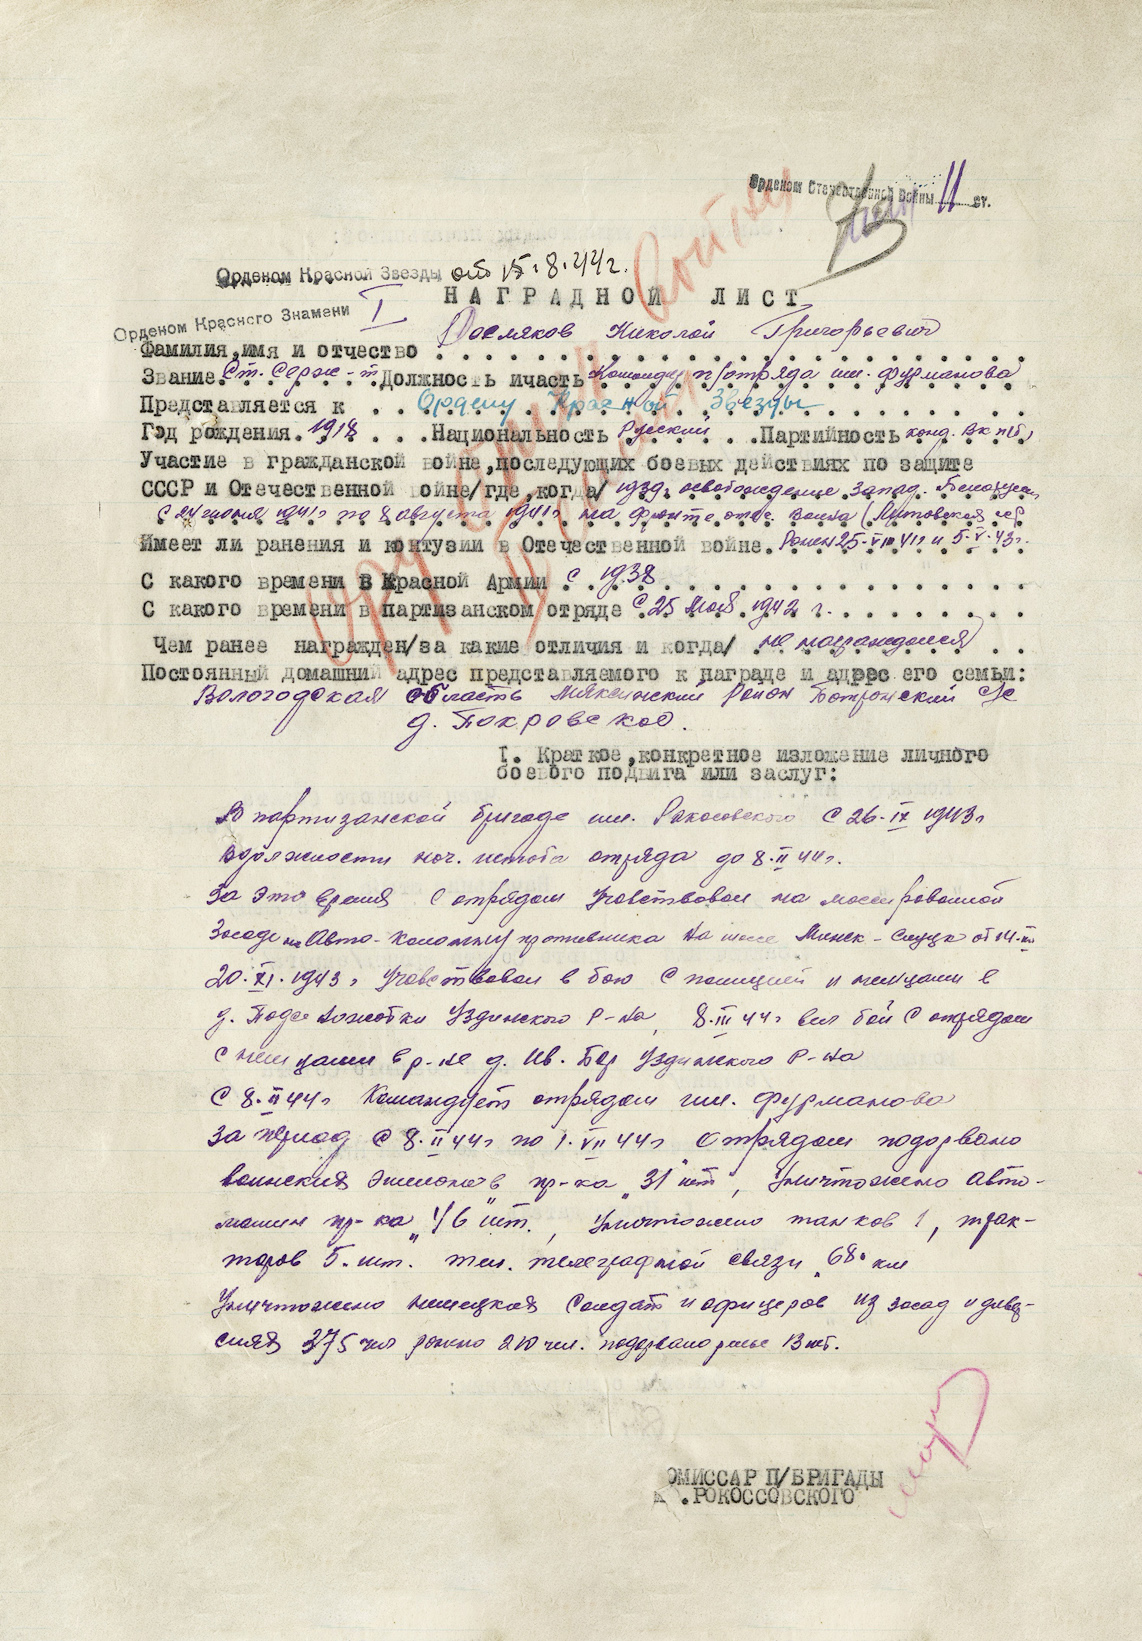 Орденом Отечественной Войны II ст.
Орденом Красной Звезды от 15.8.44 г.
НАГРАДНОЙ ЛИСТ
Орденом Красного Знамени I
Николай Григорьевич
Фамилия,имя и отчество
Звание. Ст. Серж-т Должность ичасть Командир п/отряда им. Фурманова
Представляется к Ордену Красной Звезды
Год рождения. 1918 Национальность Русский Партийность конд. ВКП(б)
Участие в гражданской войне,последующих боевых действиях по защите
СССР и Отечественной войне/где,когда/ 1939г. освобождение Запад. Белоруссии
с 24 июня 1941г по 8 августа 1941г. на фронте отеч. война (Литовская ССР
Имеет ли ранения и контузии в Отечественной войне. Ранен 25-VIII 41г и 5-V-43г.
С какого времени в Красной Армии с 1938
С какого времени в партизанском отряде с 25 Мая 1942 г.
Чем ранее награжден/за какие отличия и когда/ не награждался
Постоянный домашний адрес представляемого к награде и адрес его семьи:
Вологодская область Мяксинский Район с/с
д. Покровское.
I. Краткое,конкретное изложение личного
боевого подвига или заслуг:
В партизанской бригаде им. Рокосовского с 26-IX 1943г
в должности нач. штаба отряда до 8.II 44г.
За это время с отрядом Учавствовал на массированной
Засаде на Авто-колонну противника на шоссе Минск-Слуцк от 14-
20.XI.1943г Учавствовал в бою с полицией и немцами в
д. Узденского р-на, 8.III 44г вел бой с отрядом
с немцами в р-не д. Ив. Бор Узденского р-на
с 8.II 44г Командует отрядом им. Фурманова
За период с 8.II 44г по 1.VII 44г Отрядом подорвано
воинских эшелонов пр-ка "31" шт", Уничтожено авто-
машин пр-ка "16" шт., Уничтожено танков 1, трак-
торов 5.шт. тел. телеграфной связи "68" км
Уничтожено немецких солдат и офицеров из засад и дивер-
сиях 375 чел ранено 210 чел. подорвано рельс 13 шт.
ОМИССАР П/БРИГАДЫ
.РОКОССОВСКОГО